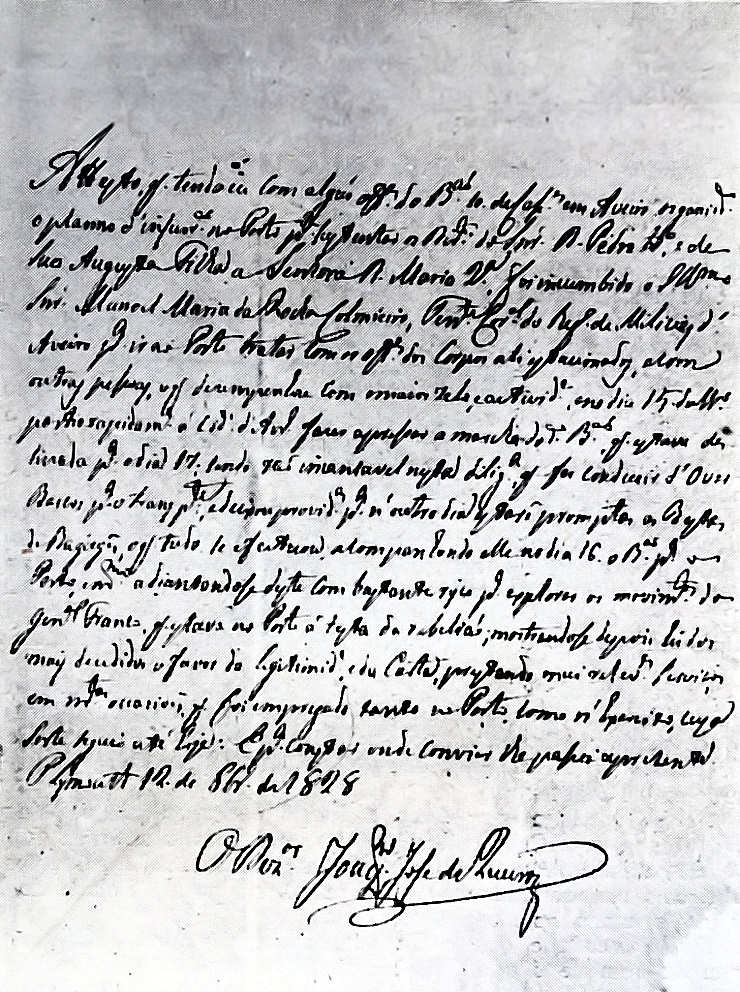 Attesto, q. tendo eu com alguns off.es do B.am 10. de Caç.es em Aveiro organiz.do
o planno d'insur.am no Porto p.a sustentar os Dir.tos do Snr. D. Pedro 4.o, e de
Sua Augusta Filha a Senhora D. Maria 2.a, foi incumbido o Ill.mo
Snr. Manoel Maria da Rocha Colmieiro, Ten.te Cor.el do Reg.to de Milicias d'
Aveiro p.a ir ao Porto tratar com os off.es dos Corpos ali estacionados, e com
outras pessoas, o q. desempenhou com o maior zelo, e activid.e, e no dia 15
a Cid.e d'Av.ro fazer apressar a marcha do d.o B.am q. estava des
tinada p.a o dia 17, sendo tão incansavel nesta dilig.a, q. fez conduzir d'Ovar
Barcos p.a o transp.te, e deu as provid.as p.a n'outro dia estarem promptas as Bestas
de Bagagens, o q. tudo se efectuou, acompanhando elle no dia 16. o B.am p.a o
Porto, adiantando-se deste com bastante risco p.a explorar os movim.tos do
Gen.al q. estava no Porto á testa da rebelião; mostrando-se depois hum dos
mais decididos a favor da Legitimid.e, e da Carta, prestando mui relev.es serviços
em m.tas occasioens, q. foi empregado tanto no Porto, como n'o Exercito, cuja
sorte seguio até hoje: E p.a constar onde convier lhe passei a presente.
Plymouth 12. de 8br.o de 1828
O Dez.or Joaq.m José de Queiroz